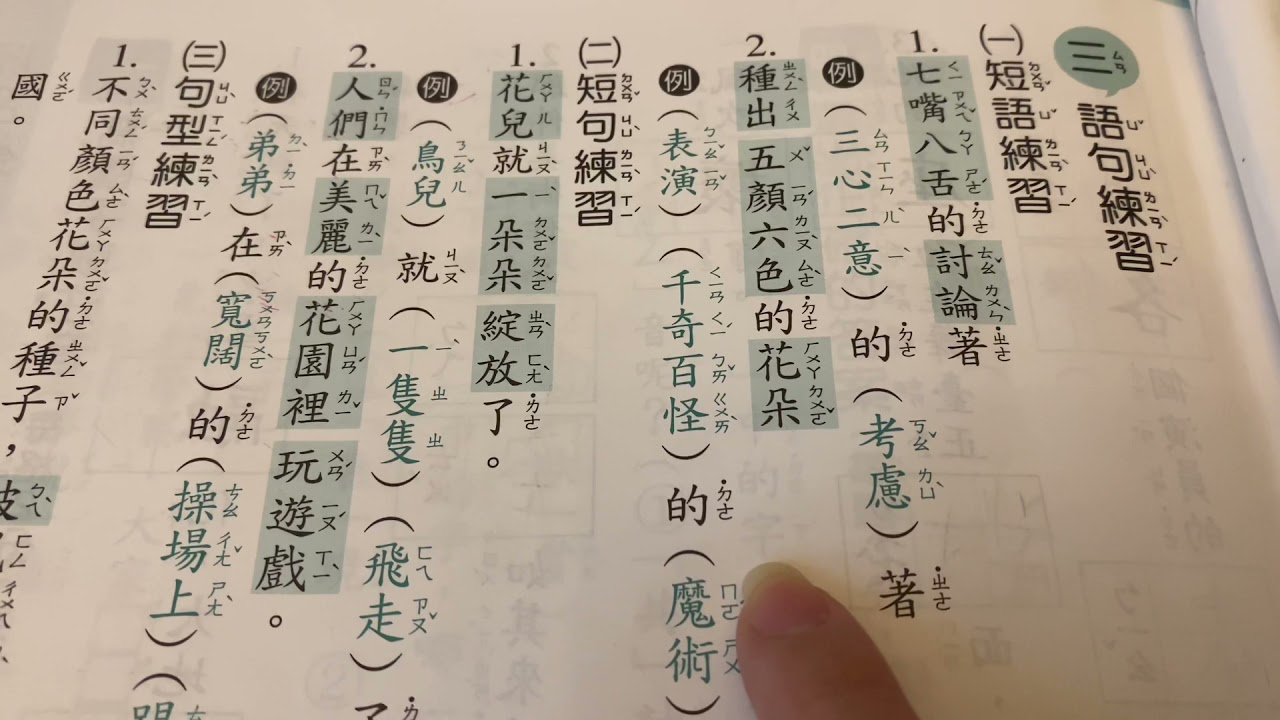 三 語句練習
㈠短語練習
1. 七嘴八舌的討論著
例（三心二意）的（考慮）著
2. 種出五顏六色的花朵
例（表演）（千奇百怪）的（魔術）
㈡短句練習
1. 花兒就一朵朵綻放了。
例（鳥兒）就（一隻隻）（飛走）了
2. 人們在美麗的花園裡玩遊戲。
例（弟弟）在（寬闊）的（操場上）（
㈢句型練習
1. 不同顏色花朵的種子，
國。